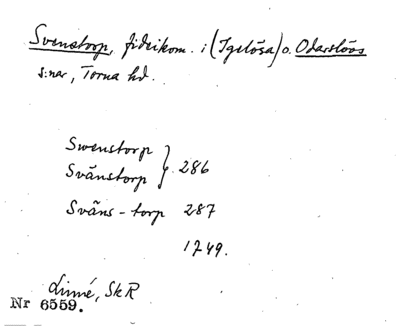 Svenstorp, fideikom. i (Igelösa) o. Odarslövs
s:nar, Torna hd.
Swenstorp
Svänstorp } 286
Sväns-torp 287
1749.
Linné, SkR
Nr 6559.